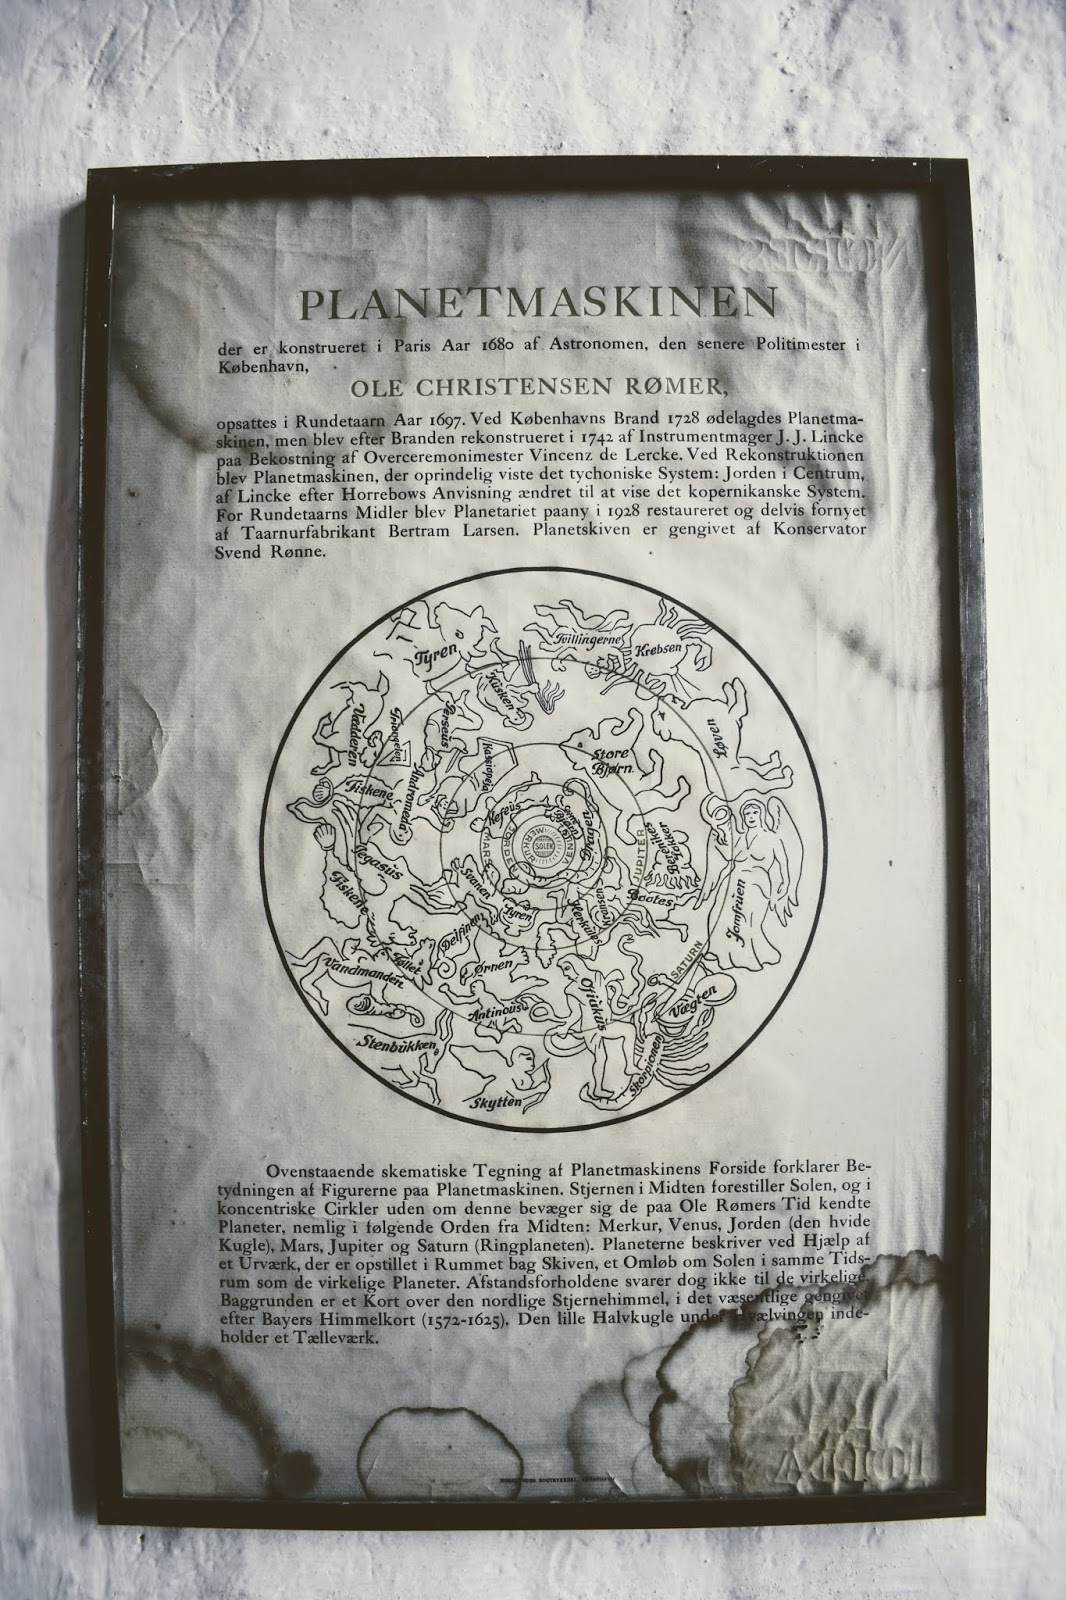 PLANETMASKINEN
der er konstrueret i Paris Aar 1680 af Astronomen, den senere Politimester i
København,
OLE CHRISTENSEN RØMER,
opsattes i Rundetaarn Aar 1697. Ved Københavns Brand 1728 ødelagdes Planetma-
skinen, men blev efter Branden rekonstrueret i 1742 af Instrumentmager J. J. Lincke
paa Bekostning af Overceremonimester Vincenz de Lercke. Ved Rekonstruktionen
blev Planetmaskinen, der oprindelig viste det tychoniske System: Jorden i Centrum,
af Lincke efter Horrebows Anvisning ændret til at vise det kopernikanske System.
For Rundetaarns Midler blev Planetariet paany i 1928 restaureret og delvis fornyet
af Taarnurfabrikant Bertram Larsen. Planetskiven er gengivet af Konservator
Svend Rønne.
Tyren
Tvillingerne
Krebsen
Kusken
Løven
Vædderen
Triangelet
Perseus
Kassiopeja
Store
Bjørn
Fiskene
Andromeda
Kefeus
Dragen
JORDEN
MARS
MERKUR
SOLEN
VENUS
JUPITER
Berenikes
Lokker
Pegasus
Svanen
Lyren
Herkules
Kronen
Bootes
Jomfruen
Fiskene
Delfinen
Føllet
Ørnen
SATURN
Vandmanden
Antinous
Ofiukus
Vægten
Stenbukken
Skorpionen
Skytten
Ovenstaaende skematiske Tegning af Planetmaskinens Forside forklarer Be-
tydningen af Figurerne paa Planetmaskinen. Stjernen i Midten forestiller Solen, og i
koncentriske Cirkler uden om denne bevæger sig de paa Ole Rømers Tid kendte
Planeter, nemlig i følgende Orden fra Midten: Merkur, Venus, Jorden (den hvide
Kugle), Mars, Jupiter og Saturn (Ringplaneten). Planeterne beskriver ved Hjælp af
et Urværk, der er opstillet i Rummet bag Skiven, et Omløb om Solen i samme Tids-
rum som de virkelige Planeter. Afstandsforholdene svarer dog ikke til de virkelige.
Baggrunden er et Kort over den nordlige Stjernehimmel, i det væsentlige gengivet
efter Bayers Himmelkort (1572-1625). Den lille Halvkugle under Hvælvingen inde-
holder et Tælleværk.